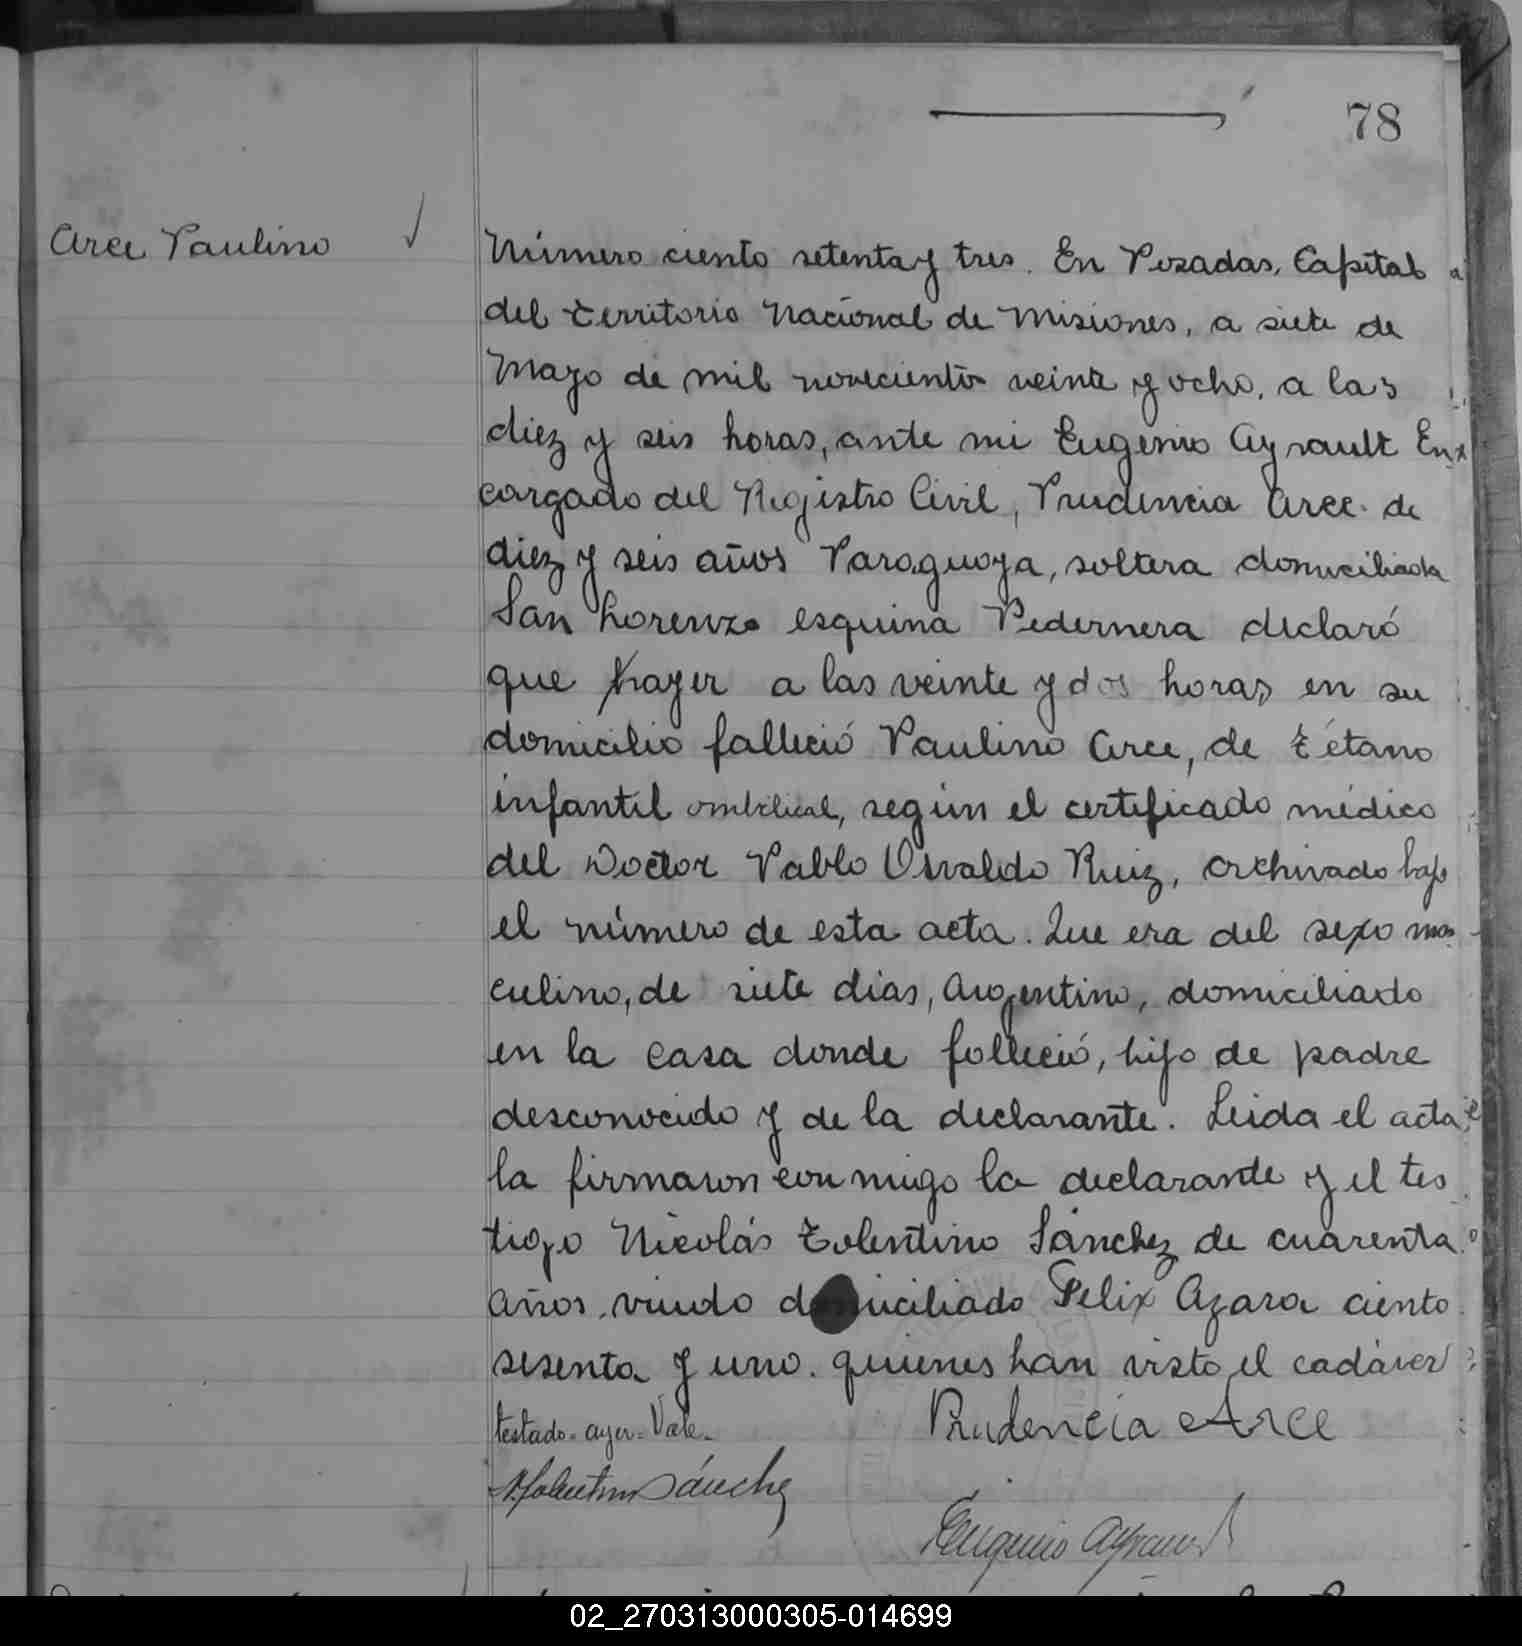 78
Arce Paulino
Número ciento setenta y tres. En Posadas, Capital
del territorio Nacional de Misiones, a siete de
Mayo de mil novecientos veinte y ocho, a las
diez y seis horas, ante mi Eugenio Ayrault En
cargado del Registro Civil, Prudencia Arce de
diez y seis años Paraguaya, soltera domiciliada
San Lorenzo esquina Pedernera declaró
que hayer a las veinte y dos horas en su
domicilio falleció Paulino Arce, de tétano
infantil ombilical, según el certificado médico
del Doctor Pablo Osvaldo Ruiz, archivado bajo
el número de esta acta. Que era del sexo mas
culino, de siete dias, Argentino, domiciliado
en la casa donde falleció, hijo de padre
desconocido y de la declarante. Leida el acta
la firmaron conmigo la declarante y el tes
tigo Nicolás Tolentino Sánchez de cuarenta
años, viudo domiciliado Felix Azara ciento
sesenta y uno. quienes han visto el cadáver
testado=ayer=Vale.
Prudencia Arce
N. Tolentino Sánchez
Eugenio Ayrault
02_270313000305-014699